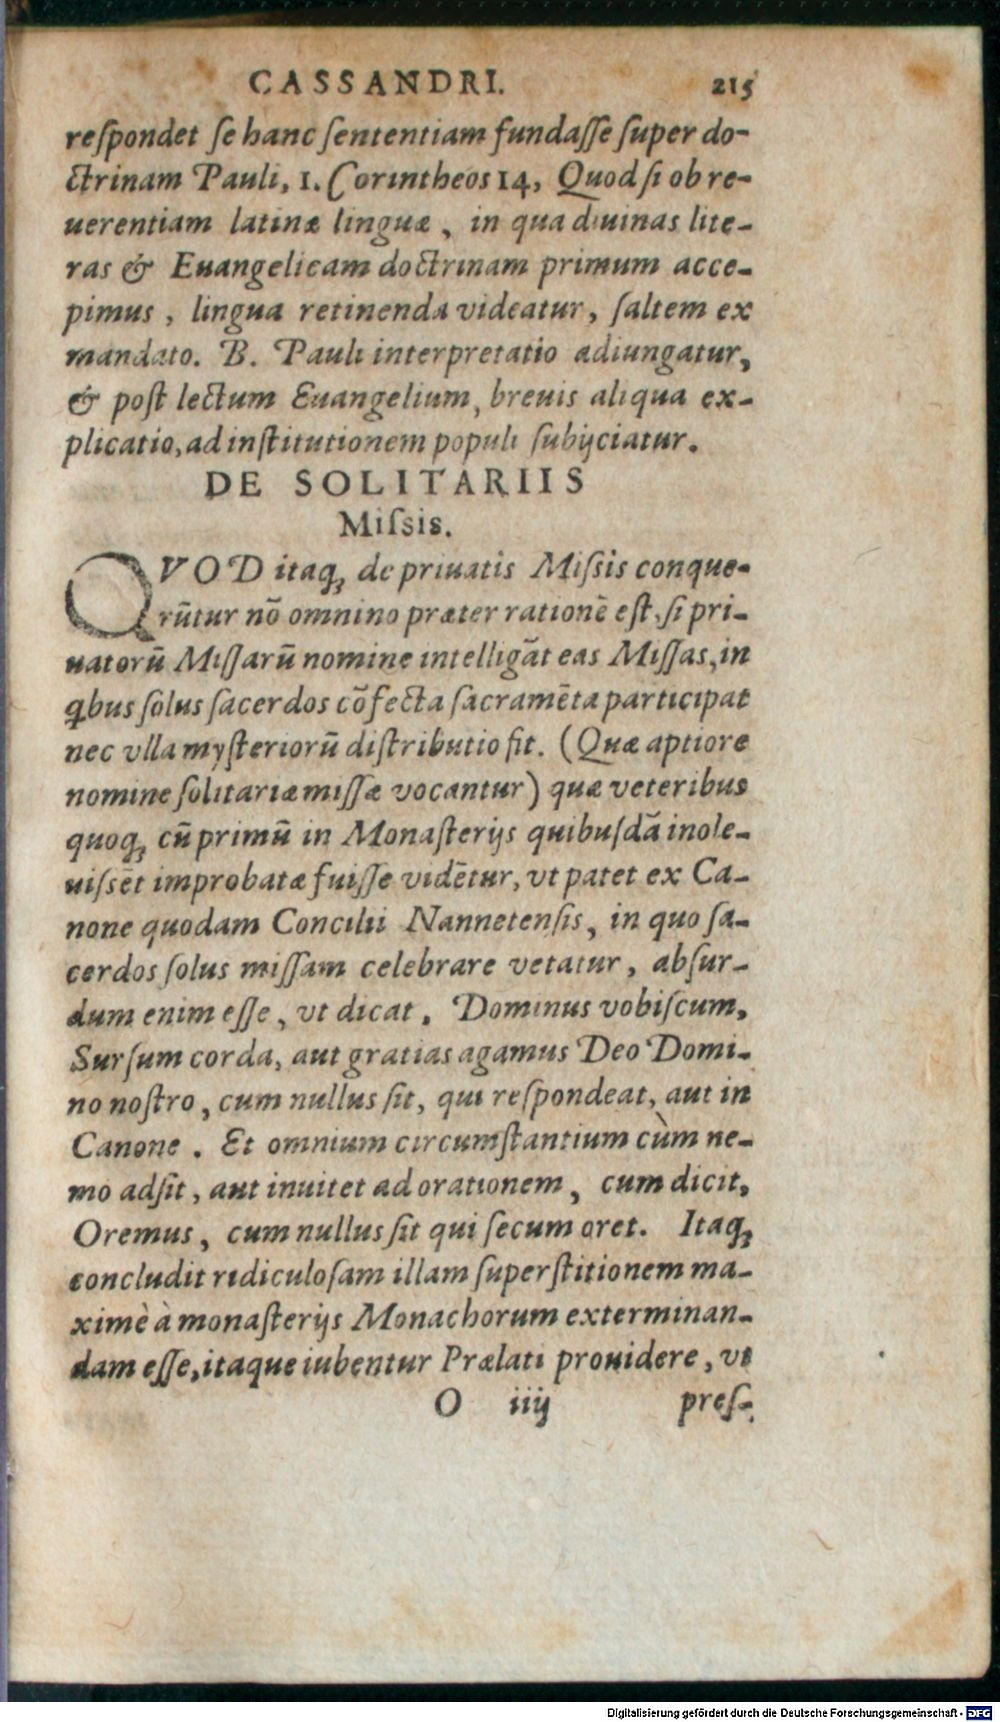 CASSANDRI. 215
reſpondet ſe hanc ſententiam fundaſſe ſuper do-
ctrinam Pauli, 1. Corintheos 14, Quod ſi ob re-
uerentiam latinæ linguæ, in qua diuinas lite-
ras & Euangelicam doctrinam primum acce-
pimus, lingua retinenda videatur, ſaltem ex
mandato. B. Pauli interpretatio adiungatur,
& poſt lectum Euangelium, breuis aliqua ex-
plicatio, ad inſtitutionem populi ſubijciatur.
DE SOLITARIIS
Miſsis.
QVOD itaqꝫ de priuatis Miſsis conque-
rūtur nō omnino præter rationē eſt, ſi pri-
uatorū Miſſarū nomine intelligāt eas Miſſas, in
ꝗbus ſolus ſacerdos cōfecta ſacramēta participat
nec vlla myſteriorū diſtributio fit. (Quæ aptiore
nomine ſolitariæ miſſæ vocantur) quæ veteribus
quoqꝫ cū primū in Monaſterijs quibuſdā inole-
uiſsēt improbatæ fuiſſe vidētur, vt patet ex Ca-
none quodam Concilii Nannetenſis, in quo ſa-
cerdos ſolus miſſam celebrare vetatur, abſur-
dum enim eſſe, vt dicat. Dominus vobiſcum,
Surſum corda, aut gratias agamus Deo Domi-
no noſtro, cum nullus ſit, qui reſpondeat, aut in
Canone. Et omnium circumſtantium cùm ne-
mo adſit, aut inuitet ad orationem, cum dicit,
Oremus, cum nullus ſit qui ſecum oret. Itaqꝫ
concludit ridiculoſam illam ſuperſtitionem ma-
ximè à monaſterijs Monachorum exterminan-
dam eſſe, itaque iubentur Prælati prouidere, vt
O iiij preſ-
Digitalisierung gefördert durch die Deutsche Forschungsgemeinschaft - DFG